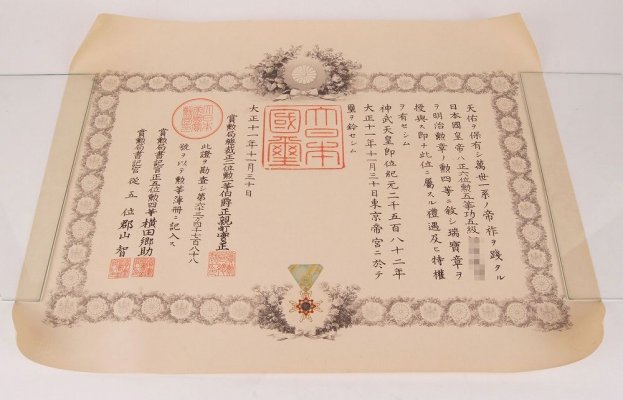 天佑ヲ保有シ萬世一系ノ帝祚ヲ踐タル
日本國皇帝ハ正六位勲五等功五級
ヲ明治勲章ノ勲四等ニ敍シ瑞寶章ヲ
授與ス即チ此位ニ屬スル禮遇及ヒ特權
ヲ有セシム
神武天皇即位紀元二千五百八十二年
大正十一年十一月三十日東京帝宮ニ於テ
璽ヲ鈐セシム
大日本國璽
大正十一年十一月三十日
賞勲局總裁正二位勲一等伯爵正親町實正
此證ヲ勘査シ第六十三万四千七百八十八
號ヲ以テ勲等簿冊ニ記入ス
賞勲局書記官正五位勲四等横田郷助
賞勲局書記官從五位郡山智